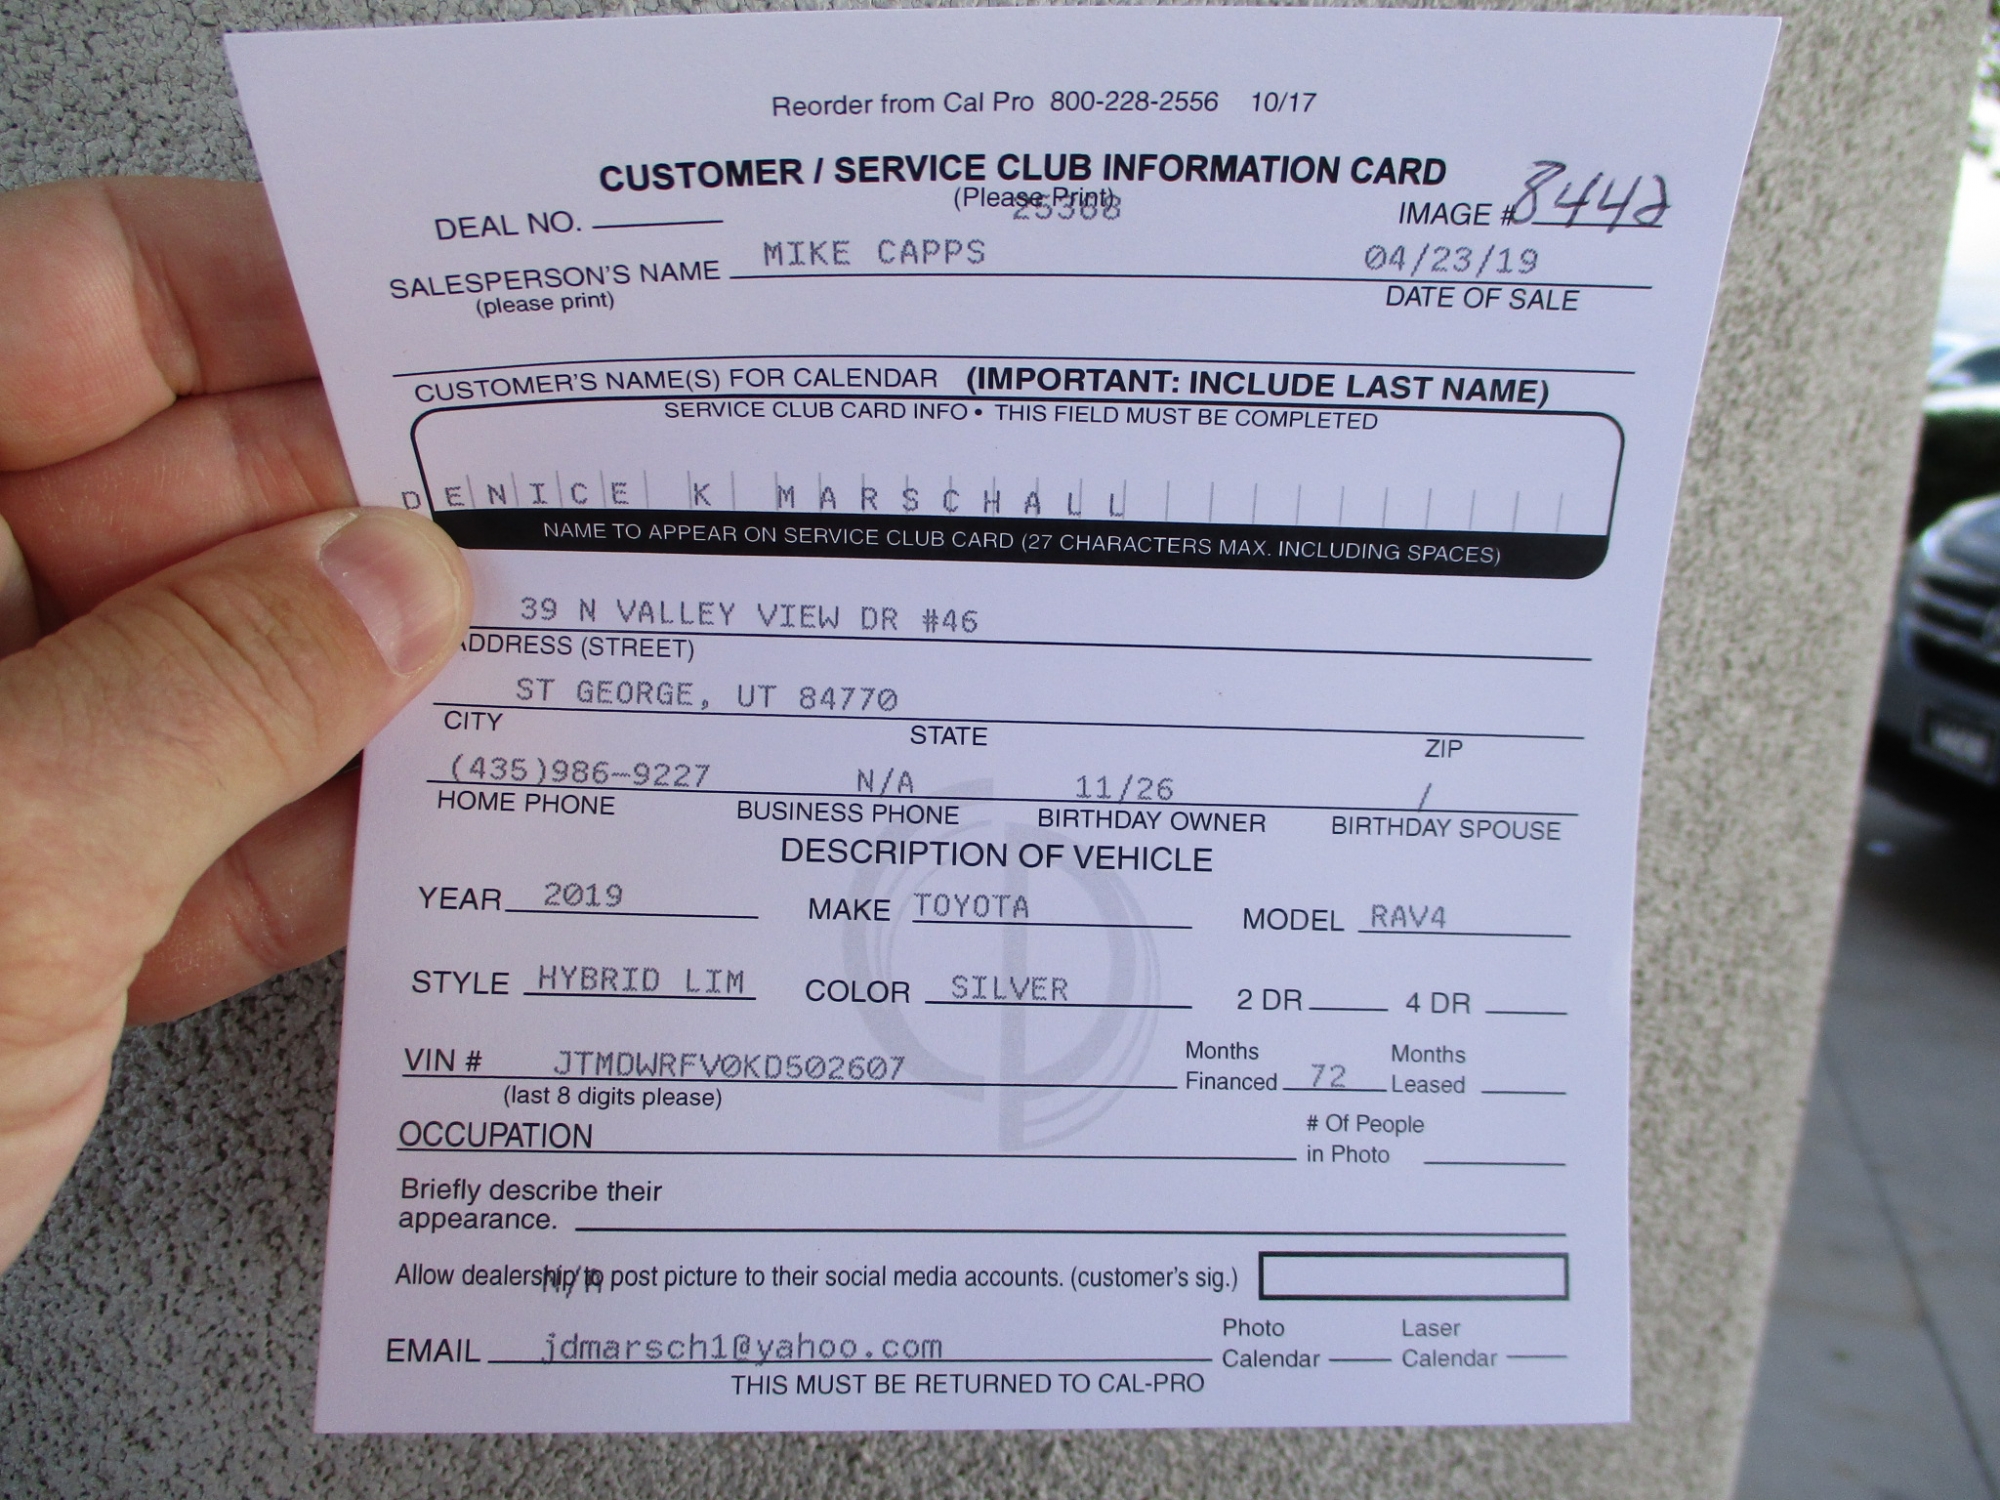 Reorder from Cal Pro 800-228-2556 10/17
CUSTOMER / SERVICE CLUB INFORMATION CARD
(Please Print)
25368
DEAL NO. IMAGE # 8442
SALESPERSON'S NAME MIKE CAPPS 04/23/19
(please print) DATE OF SALE
CUSTOMER'S NAME(S) FOR CALENDAR (IMPORTANT: INCLUDE LAST NAME)
SERVICE CLUB CARD INFO • THIS FIELD MUST BE COMPLETED
DENICE K MARSCHALL
NAME TO APPEAR ON SERVICE CLUB CARD (27 CHARACTERS MAX. INCLUDING SPACES)
39 N VALLEY VIEW DR #46
ADDRESS (STREET)
ST GEORGE, UT 84770
CITY STATE ZIP
(435)986-9227 N/A 11/26 /
HOME PHONE BUSINESS PHONE BIRTHDAY OWNER BIRTHDAY SPOUSE
DESCRIPTION OF VEHICLE
YEAR 2019 MAKE TOYOTA MODEL RAV4
STYLE HYBRID LIM COLOR SILVER 2 DR 4 DR
VIN # JTMDWRFV0KD502607 Months Financed 72 Months Leased
(last 8 digits please)
OCCUPATION # Of People in Photo
Briefly describe their
appearance.
Allow dealership to post picture to their social media accounts. (customer's sig.)
N/A
EMAIL jdmarsch1@yahoo.com Photo Calendar Laser Calendar
THIS MUST BE RETURNED TO CAL-PRO